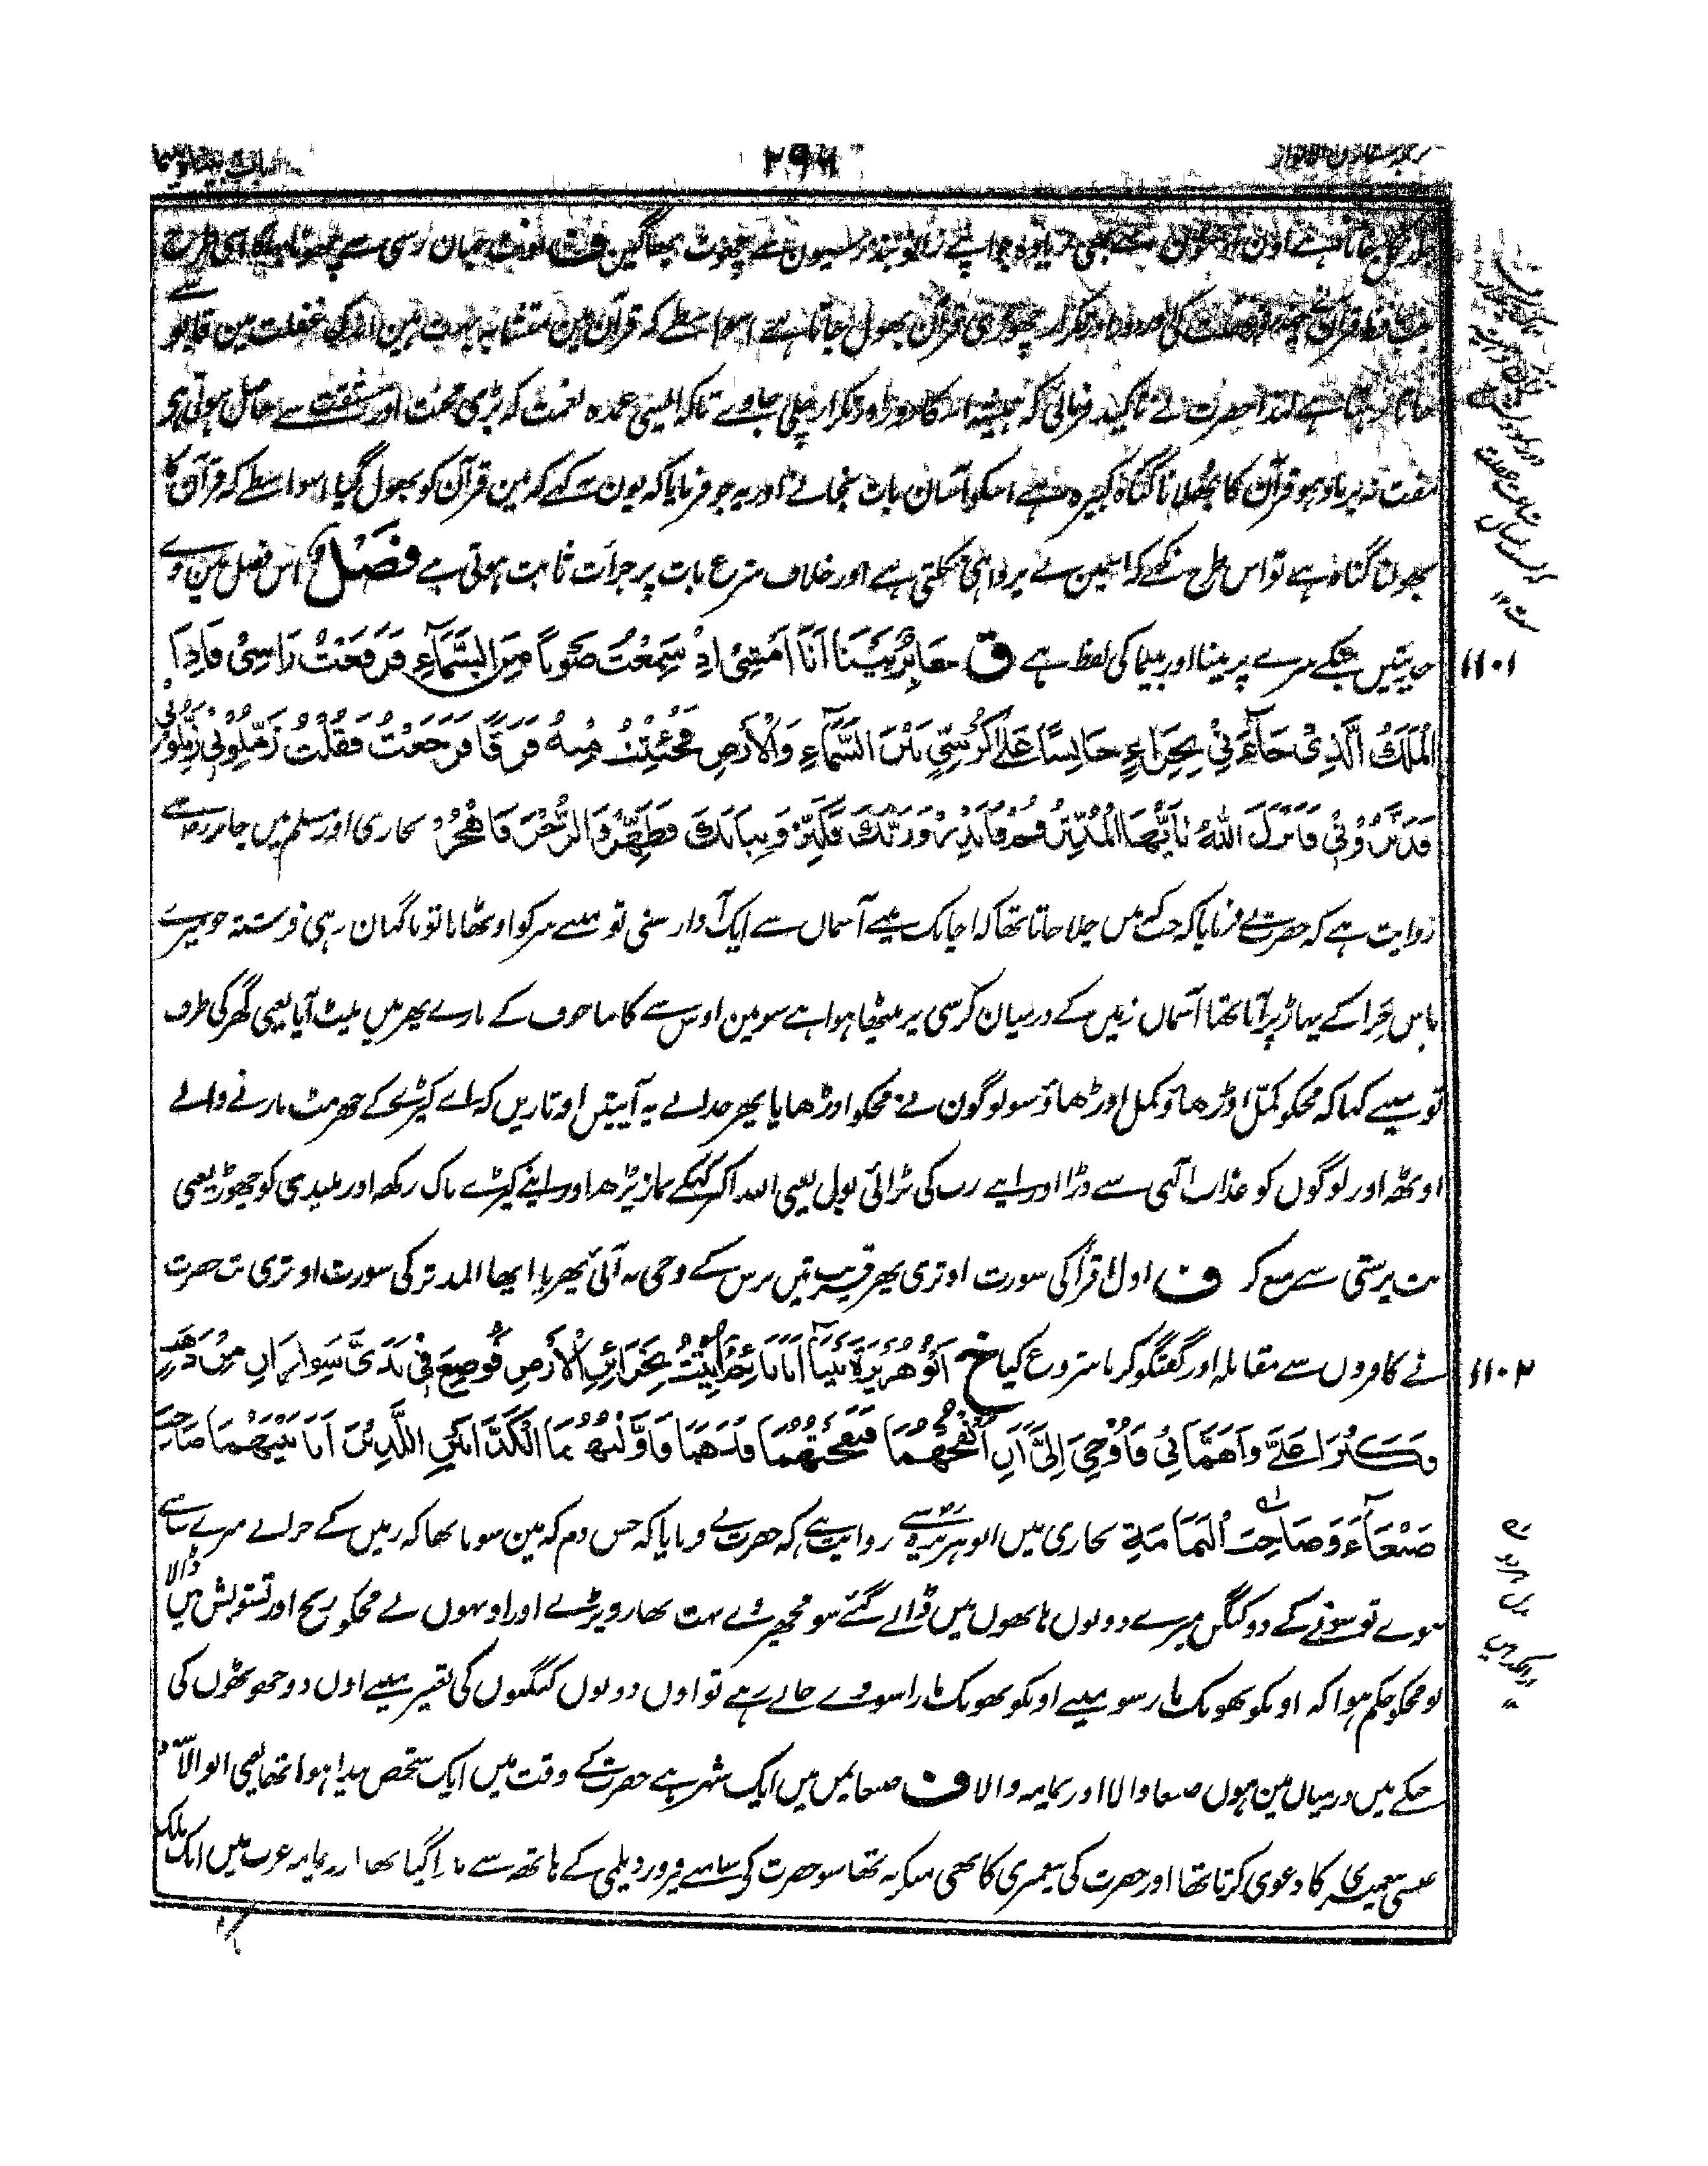 ۲۹۶
جلد نکل جاتا ہے اون اونٹون سے بھی زیادہ جو اپنے زانو بند رسیون سے چھوٹ بھاگین ف اونٹ جہان رسی سے چھوٹا بھاگا اسی طرح
قرآن بھول جاتا ہے اسواسطے کہ قرآن مین متشابہ بہت ہین ادنی غفلت مین قابو سے
جاتا رہتا ہے لہذا حضرت نے تاکید فرمائی کہ ہمیشہ اسکا دور اور تکرار چلی جاوے تاکہ ایسی عمدہ نعمت کہ بڑی محنت اور مشقت سے حاصل ہوتی ہی
مفت نہ برباد ہو قرآن کا بھلانا گناہ کبیرہ ہے اسکو آسان بات نجانے اور یہ جو فرمایا کہ یون نہ کہے کہ مین قرآن کو بھول گیا اسواسطے کہ قرآن کا
بھولنا گناہ ہے تو اس طرح نکہے کہ اسمین بے پرواہی نکلتی ہے اور خلاف شرع بات پر جرأت ثابت ہوتی ہے فَصْلٌ اس فصل مین وے
حدیثیں جنکے سرے پر بینا اور بینما کی لفظ ہے ق جَابِرٌ بَيْنَا اَنَا اَمْشِيْ اِذْ سَمِعْتُ صَوْتًا مِنَ السَّمَآءِ فَرَفَعْتُ رَاسِيْ فَاِذَا
۱۱۰۱
الْمَلَكُ الَّذِيْ جَآءَنِيْ بِحِرَاءٍ جَالِسًا عَلٰى كُرْسِيٍّ بَيْنَ السَّمَآءِ وَالْاَرْضِ فَجُئِثْتُ مِنْهُ فَرَقًا فَرَجَعْتُ فَقُلْتُ زَمِّلُوْنِيْ زَمِّلُوْنِيْ
فَدَثَّرُوْنِيْ فَاَنْزَلَ اللّٰهُ يَا اَيُّهَا الْمُدَّثِّرُ قُمْ فَاَنْذِرْ وَرَبَّكَ فَكَبِّرْ وَثِيَابَكَ فَطَهِّرْ وَالرُّجْزَ فَاهْجُرْ بخاری اور مسلم میں جابر سے
روایت ہے کہ حضرت نے فرمایا کہ جسکے میں چلا جاتا تھا کہ اچانک مینے آسماں سے ایک آواز سنی تو مینے سر کو اوٹھایا تو ناگہان وہی فرشتہ جو میرے
پاس حرا کے پہاڑ پر آیا تھا آسماں زمیں کے درمیان کرسی پر بیٹھا ہوا ہے سو مین اوس سے کانپا خوف کے مارے پھر میں پلٹ آیا یعنی گھر کی طرف
تو مینے کہا کہ مجکو کمل اوڑھاؤ کمل اوڑھاؤ سو لوگون نے مجکو اوڑھایا پھر خدا نے یہ آیتیں اوتاریں کہ اے کپڑے کے جھرمٹ مارنے والے
اوٹھ اور لوگوں کو عذاب الٰہی سے ڈرا اور اپنے رب کی بڑائی بول یعنی اللہ اکبر کہکے نماز پڑھ اور اپنے کپڑے پاک رکھ اور پلیدی کو چھوڑ یعنی
بت پرستی سے منع کر ف اول اقرأ کی سورت اوتری پھر قریب تین برس کے وحی نہ آئی پھر یا ایھا المدثر کی سورت اوتری تب حضرت
نے کافروں سے مقابلہ اور گفتگو کرنا شروع کیا خ اَبُوْ هُرَيْرَةَ بَيْنَا اَنَا نَائِمٌ اُتِيْتُ بِخَزَائِنِ الْاَرْضِ فَوُضِعَ فِيْ يَدَيَّ سِوَارَانِ مِنْ ذَهَبٍ
۱۱۰۲
فَكَبُرَا عَلَيَّ وَاَهَمَّانِيْ فَاُوْحِيَ اِلَيَّ اَنِ انْفُخْهُمَا فَنَفَخْتُهُمَا فَذَهَبَا فَاَوَّلْتُهُمَا الْكَذَّابَيْنِ اللَّذَيْنِ اَنَا بَيْنَهُمَا صَاحِبَ
صَنْعَآءَ وَصَاحِبَ الْيَمَامَةِ بخاری میں ابو ہریرہ سے روایت ہے کہ حضرت نے فرمایا کہ جس دم کہ مین سوتا تھا کہ زمیں کے خزانے میرے سامنے
ہوے تو سونے کے دو کنگن میرے دونوں ہاتھوں میں ڈالے گئے سو مجھپر وے بہت بھارو پڑے اور اونہوں نے مجکو رنج اور تشویش میں ڈالا
تو مجکو حکم ہوا کہ اونکو پھونک مار سو مینے اونکو پھونک مارا سو وے جاتے رہے تو اون دونوں کنگنوں کی تعبیر مینے اوں دو جھوٹھوں کی
جنکے میں درمیاں مین ہوں صنعا والا اور یمامہ والا ف صنعا یمن میں ایک شہر ہے حضرت کے وقت میں ایک شخص پیدا ہوا تھا یعنی ابو الاسود
عنسی پیغمبری کا دعوی کرتا تھا اور حضرت کی پیغمبری کا بھی منکر نہ تھا سو حضرت کی سامنے فیروز دیلمی کے ہاتھ سے مارا گیا تھا اور یمامہ عرب میں ایک ملک